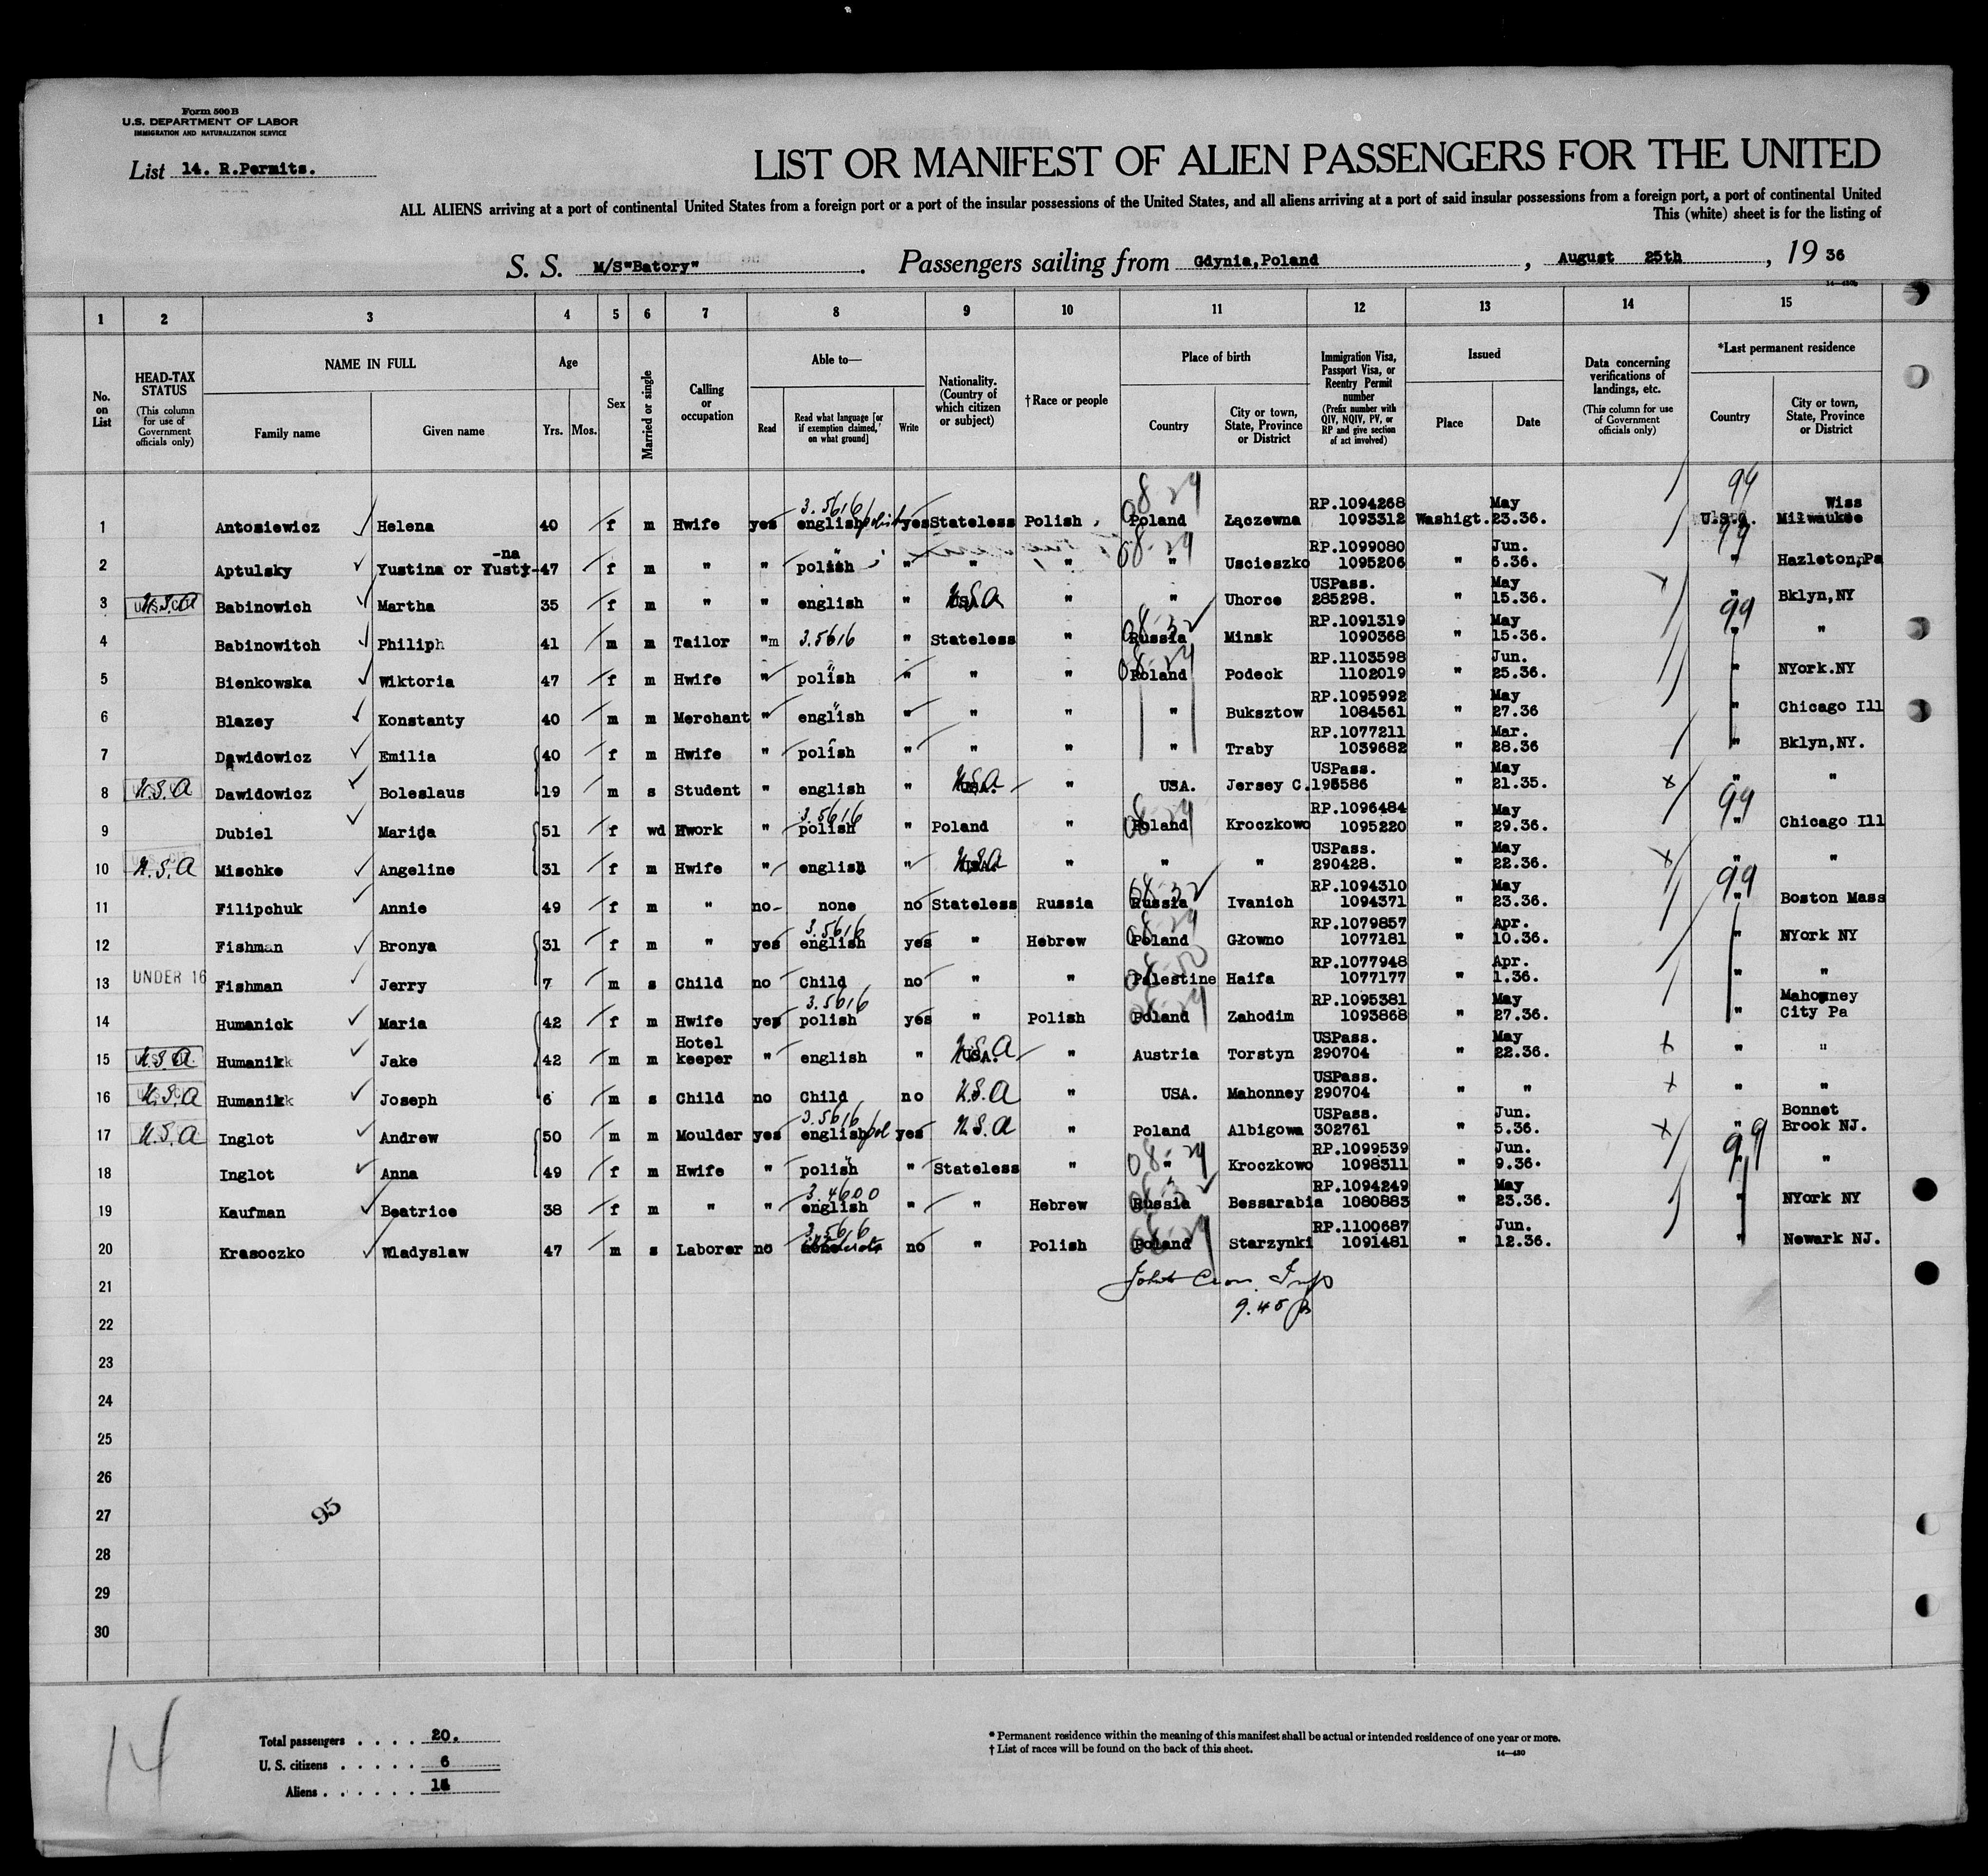 Form 500 B
U.S. DEPARTMENT OF LABOR
IMMIGRATION AND NATURALIZATION SERVICE
List 14. R.Permits.
LIST OR MANIFEST OF ALIEN PASSENGERS FOR THE UNITED
ALL ALIENS arriving at a port of continental United States from a foreign port or a port of the insular possessions of the United States, and all aliens arriving at a port of said insular possessions from a foreign port, a port of continental United
This (white) sheet is for the listing of
S. S. M/S"Batory". Passengers sailing from Gdynia,Poland, August 25th, 19 36
1 2 3 4 5 6 7 8 9 10 11 12 13 14 15
No. on List
HEAD-TAX STATUS (This column for use of Government officials only)
NAME IN FULL Family name Given name
Age Yrs. Mos.
Sex
Married or single
Calling or occupation
Able to— Read Read what language [or if exemption claimed, on what ground] Write
Nationality. (Country of which citizen or subject)
†Race or people
Place of birth Country City or town, State, Province or District
Immigration Visa, Passport Visa, or Reentry Permit number (Prefix number with QIV, NQIV, PV, or RP and give section of act involved)
Issued Place Date
Data concerning verifications of landings, etc. (This column for use of Government officials only)
*Last permanent residence Country City or town, State, Province or District
1 Antosiewicz Helena 40 f m Hwife yes 3.5616 english polish yes Stateless Polish 08-29 Poland Łączewna RP.1094268 1093312 Washigt. May 23.36. 99 U.S.A. Wiss Milwaukee
2 Aptulsky Yustina or Yusty-na 47 f m " " polish " " " 08-29 " Uscieszko RP.1099080 1095206 " Jun. 6.36. 99 " Hazleton,Pa
3 U.S.A Babinowich Martha 35 f m " " english " U.S.A " " Uhorce USPass. 285298. " May 15.36. x " Bklyn,NY
4 Babinowitch Philiph 41 m m Tailor "m 3.5616 " Stateless " 08-32 Russia Minsk RP.1091319 1090368 " May 15.36. 99 "
5 Bienkowska Wiktoria 47 f m Hwife " polish " " " 08-29 Poland Podeck RP.1103598 1102019 " Jun. 25.36. " NYork.NY
6 Blazey Konstanty 40 m m Merchant " english " " " " Buksztow RP.1095992 1084561 " May 27.36 " Chicago Ill
7 Dawidowicz Emilia 40 f m Hwife " polish " " " " Traby RP.1077211 1039682 " Mar. 28.36 " Bklyn,NY.
8 U.S.A Dawidowicz Boleslaus 19 m s Student " english " U.S.A " USA. Jersey C. USPass. 195586 " May 21.35. x " "
9 Dubiel Marida 51 f wd Hwork " 3.5616 polish " Poland " 08-29 Poland Kroczkowo RP.1096484 1095220 " May 29.36. 99 " Chicago Ill
10 U.S.A Mischke Angeline 31 f m Hwife " english " U.S.A " " " USPass. 290428. " May 22.36. x " "
11 Filipchuk Annie 49 f m " no none no Stateless Russia 08-32 Russia Ivanich RP.1094310 1094371 " May 23.36. 99 " Boston Mass
12 Fishman Bronya 31 f m " yes 3.5616 english yes " Hebrew 08-29 Poland Głowno RP.1079857 1077181 " Apr. 10.36. " NYork NY
13 UNDER 16 Fishman Jerry 7 m s Child no Child no " " Palestine Haifa RP.1077948 1077177 " Apr. 1.36. " "
14 Humanick Maria 42 f m Hwife yes 3.5616 polish yes " Polish 08-29 Poland Zahodim RP.1095381 1093868 " May 27.36. " Mahonney City Pa
15 U.S.A Humanik Jake 42 m m Hotel keeper " english " U.S.A " Austria Torstyn USPass. 290704 " May 22.36. x " "
16 U.S.A Humanik Joseph 6 m s Child no Child no U.S.A " USA. Mahonney USPass. 290704 " " x " "
17 U.S.A Inglot Andrew 50 m m Moulder yes 3.5616 english pol yes U.S.A " Poland Albigowa USPass. 302761 " Jun. 5.36. x " Bonnet Brook NJ.
18 Inglot Anna 49 f m Hwife " polish " Stateless " 08-29 " Kroczkowo RP.1099539 1098311 " Jun. 9.36. 99 " "
19 Kaufman Beatrice 38 f m " " 3.4600 english " " Hebrew 08-32 Russia Bessarabia RP.1094249 1080883 " May 23.36. " NYork NY
20 Krasoczko Wladyslaw 47 m s Laborer no 3.5616 none no " Polish 08-29 Poland Starzynki RP.1100687 1091481 " Jun. 12.36. " Newark NJ.
21
22
23
24
25
26
27
28
29
30
9.45 p
95
14
Total passengers . . . . 20.
U. S. citizens . . . . . 6
Aliens . . . . . .
* Permanent residence within the meaning of this manifest shall be actual or intended residence of one year or more.
† List of races will be found on the back of this sheet.
14—430